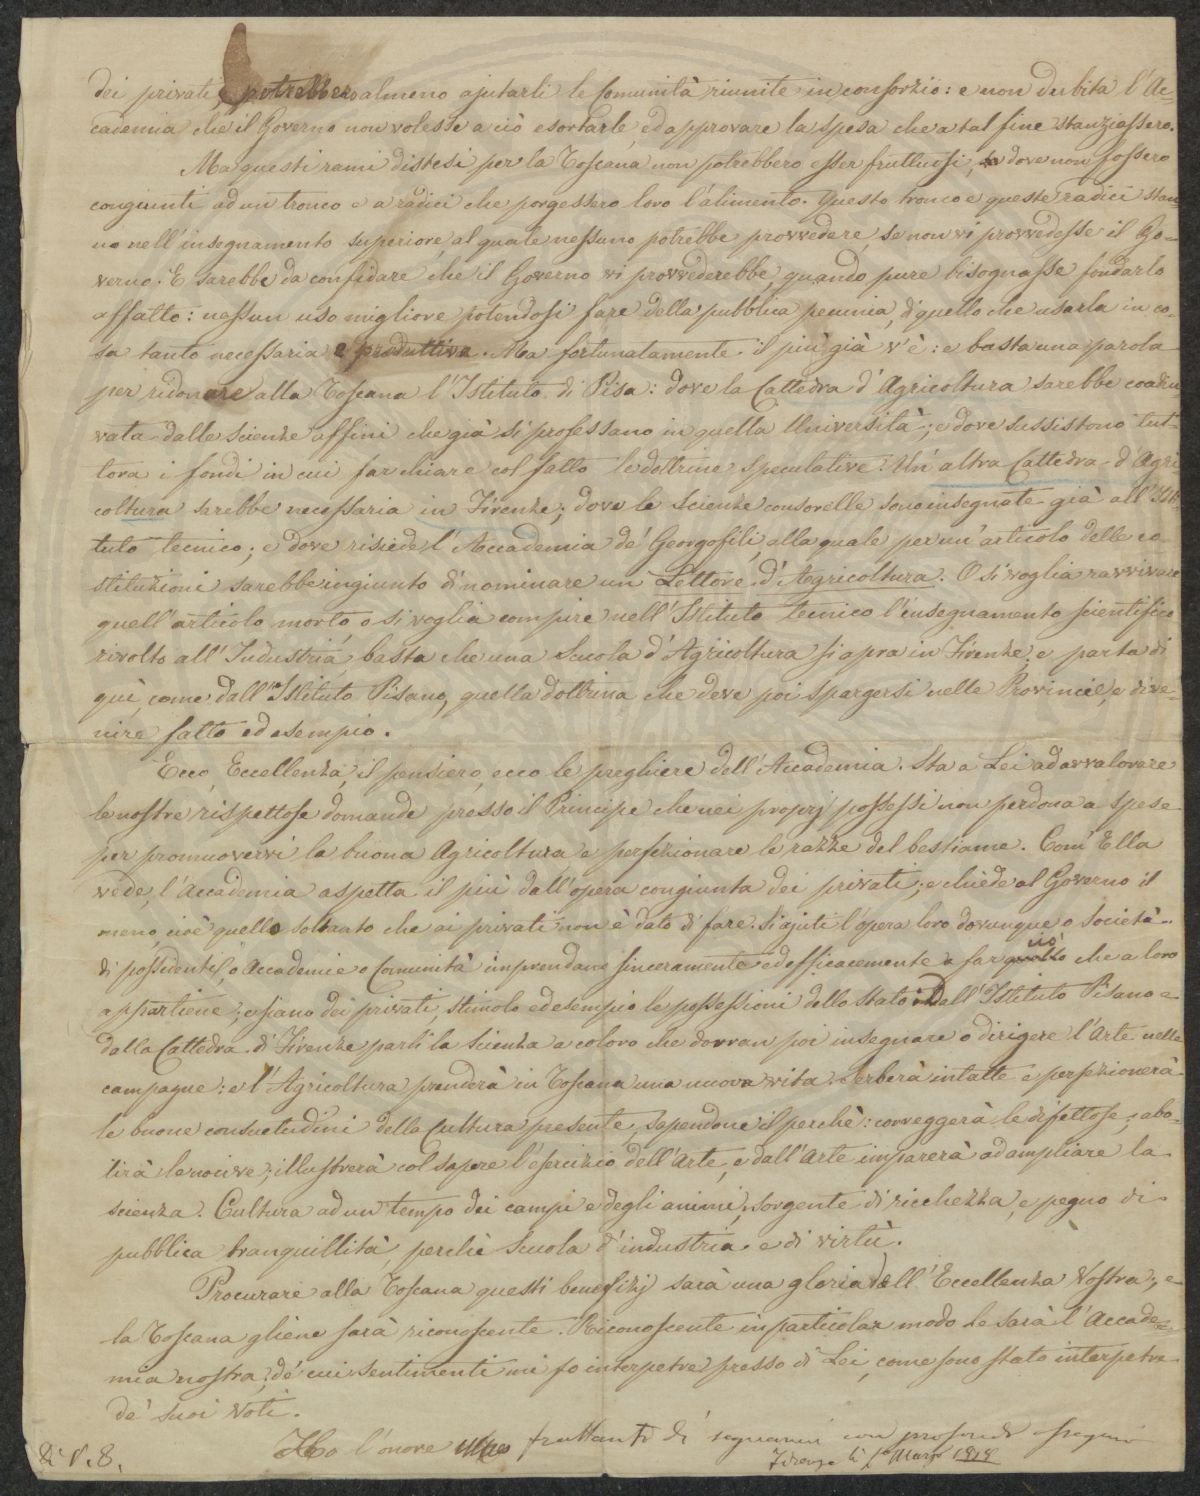 dei privati, potrebbero almeno ajutarli le Comunità riunite in consorzio: e non dubita l'Ac=
cademia che il Governo non volesse a ciò esortarle, ed approvare la spesa che a tal fine stanziassero.
Ma questi rami distesi per la Toscana non potrebbero esser fruttuosi, dove non fossero
congiunti ad un tronco e a radici che porgessero loro l'alimento. Questo tronco e queste radici stan
no nell'insegnamento superiore, al quale nessuno potrebbe provvedere, se non vi provvedesse il Go=
verno. E sarebbe da confidare che il Governo vi provvederebbe, quando pure bisognasse fondarlo
affatto: nessun uso migliore potendosi fare della pubblica pecunia, di quello che usarla in co=
sa tanto necessaria e produttiva. Ma fortunatamente il più già v'è: e basta una parola
per ridonare alla Toscana l'Istituto di Pisa: dove la Cattedra d'Agricoltura sarebbe coadiu
vata dalle scienze affini che già si professano in quella Università; e dove sussistono tut=
tora i fondi in cui far chiare col fatto le dottrine speculative. Un'altra Cattedra d'Agri
coltura sarebbe necessaria in Firenze; dove le scienze consorelle sono insegnate già all'Isti
tuto tecnico; e dove risiede l'Accademia de' Georgofili, alla quale per un'articolo delle co
stituzioni sarebbe ingiunto di nominare un Lettore d'Agricoltura. O si voglia ravvivare
quell'articolo morto, o si voglia compire nell'Istituto tecnico l'insegnamento scientifico
rivolto all'Industria, basta che una Scuola d'Agricoltura si apra in Firenze; e parta di
quì, come dall'Istituto Pisano, quella dottrina che deve poi spargersi nelle Provincie, e dive=
nire fatto ed esempio.
Ecco, Eccellenza, il pensiero, ecco le preghiere dell'Accademia. Sta a Lei ad avvalorare
le nostre rispettose domande presso il Principe che nei proprj possessi non perdona a spese
per promuovervi la buona Agricoltura e perfezionare le razze del bestiame. Com'Ella
vede, l'Accademia aspetta il più dall'opera congiunta dei privati; e chiede al Governo il
meno, cioè quello soltanto che ai privati non è dato di fare. Si ajuti l'opera loro dovunque o Società
di possidenti, o Accademie o Comunità imprendano sinceramente ed efficacemente a far ciò che a loro
appartiene; e siano dei privati stimolo ed esempio le possessioni dello Stato: Dall'Istituto Pisano e
dalla Cattedra di Firenze parta la scienza a coloro che dovran poi insegnare o dirigere l'Arte nelle
campagne: e l'Agricoltura prenderà in Toscana una nuova vita. Serberà intatte e perfezionerà
le buone consuetudini della Cultura presente, sapendone il perchè: correggerà le difettose; abo=
lirà le nocive; illustrerà col sapere l'esercizio dell'Arte, e dall'Arte imparerà ad ampliare la
scienza. Cultura ad un tempo dei campi e degli animi, sorgente di ricchezza, e pegno di
pubblica tranquillità, perchè Scuola d'industria e di virtù.
Procurare alla Toscana questi benefizj sarà una gloria dell'Eccellenza Vostra, e
la Toscana gliene sarà riconoscente. Riconoscente in particolar modo le sarà l'Accade=
mia nostra, de' cui sentimenti mi fo interpetre presso di Lei, come sono stato interpetre
de' suoi Voti.
Ho l'onore frattanto di segnarmi con profondo
Firenze li Marzo